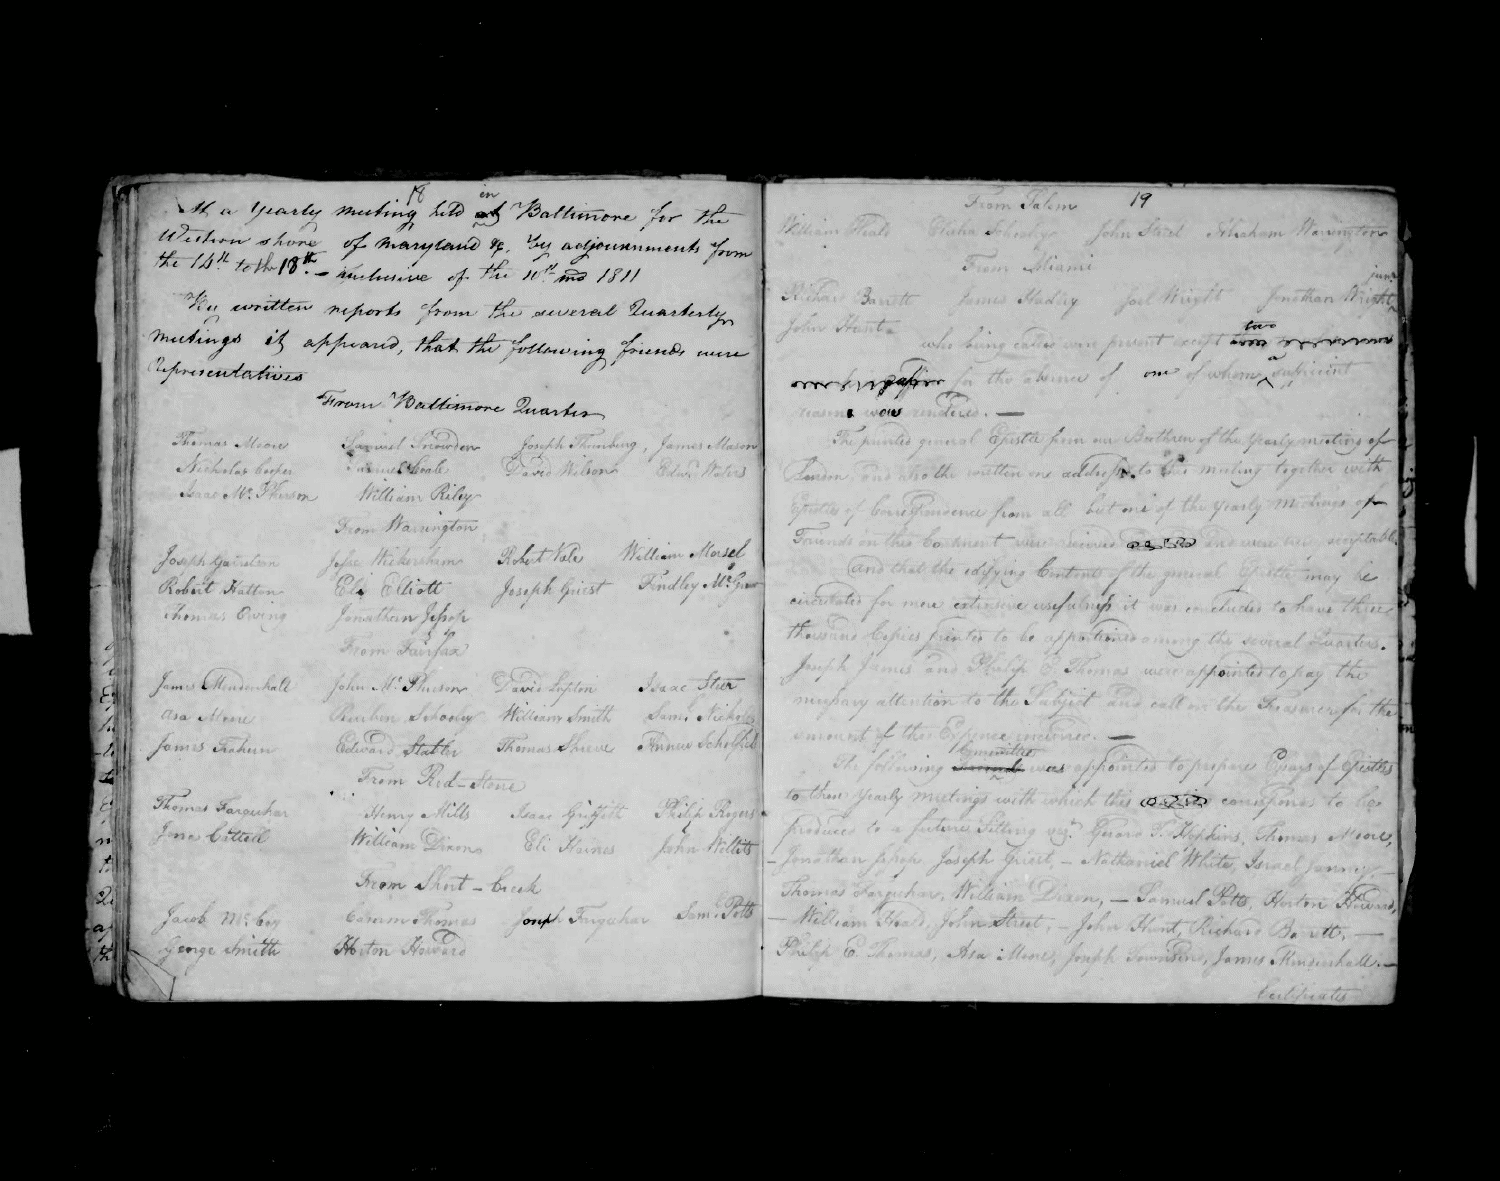 18
At a Yearly meeting held in Baltimore for the
Western shore of Maryland &c. by adjournments from
the 14th to the 18th - inclusive of the 10th mo 1811
By written reports from the several Quarterly
meetings it appeared, that the following friends were
Representatives
From Baltimore Quarter
Thomas Moore Samuel Snowden Joseph Thornburg, James Mason
Nicholas Cooper David Wilson Edwd Waters
Isaac Mc Pherson William Riley
From Warrington
Joseph Garretson Jesse Wickersham Robert Vale William Morsel
Robert Hatton Eli Elliott Joseph Griest Findley Mc Grew
Thomas Ewing Jonathan Jessop
From Fairfax
James Mendenhall John Mc Pherson David Lupton Isaac Steer
Asa Moore Reuben Schooley William Smith Saml Nichols
James Edward Stabler Thomas Shreve Scholfield
From Red-Stone
Thomas Farquhar Henry Mills Isaac Griffith Philip Rogers
Jonas Cattell William Dixon Eli Haines John Willits
From Short-Creek
Jacob Mc Coy Camm Thomas Joseph Farquhar Saml Potts
George Smith Horton Howard
From Salem 19
William Heald Elisha Schooley John Street Abraham Warrington
From Miami
junr
Richard Barrett James Hadley Joel Wright Jonathan Wright
John Hunt
two
who being called were present except
for the absence of one of whom a sufficient
reason was rendered. —
The printed general Epistle from our Brethren of the Yearly meeting of
London and also the written one addressed to this meeting together with
Epistles of Correspondence from all but one of the Yearly Meetings of
Friends on this Continent were received and were very acceptable.
And that the edifying Contents of the general Epistle may be
circulated for more extensive usefulness it was concluded to have three
thousand Copies printed to be apportioned among the several Quarters.
Joseph James and Philip E Thomas were appointed to pay the
necessary attention to the Subject and call on the Treasurer for the
amount of the Expence incurred. —
Committee
The following Friends was appointed to prepare Essays of Epistles
to those Yearly Meetings with which this corresponds to be
produced to a future Sitting viz. Gerard T. Hopkins, Thomas Moore,
- Jonathan Jessop, Joseph Griest, - Nathaniel White, Israel Janney, -
Thomas Farquhar, William Dixon, - Samuel Potts, Horton Howard,
- William Heald, John Street, - John Hunt, Richard Barrett, —
Philip E. Thomas, Asa Moore, Joseph Townsend, James Mendenhall. -
Certificates